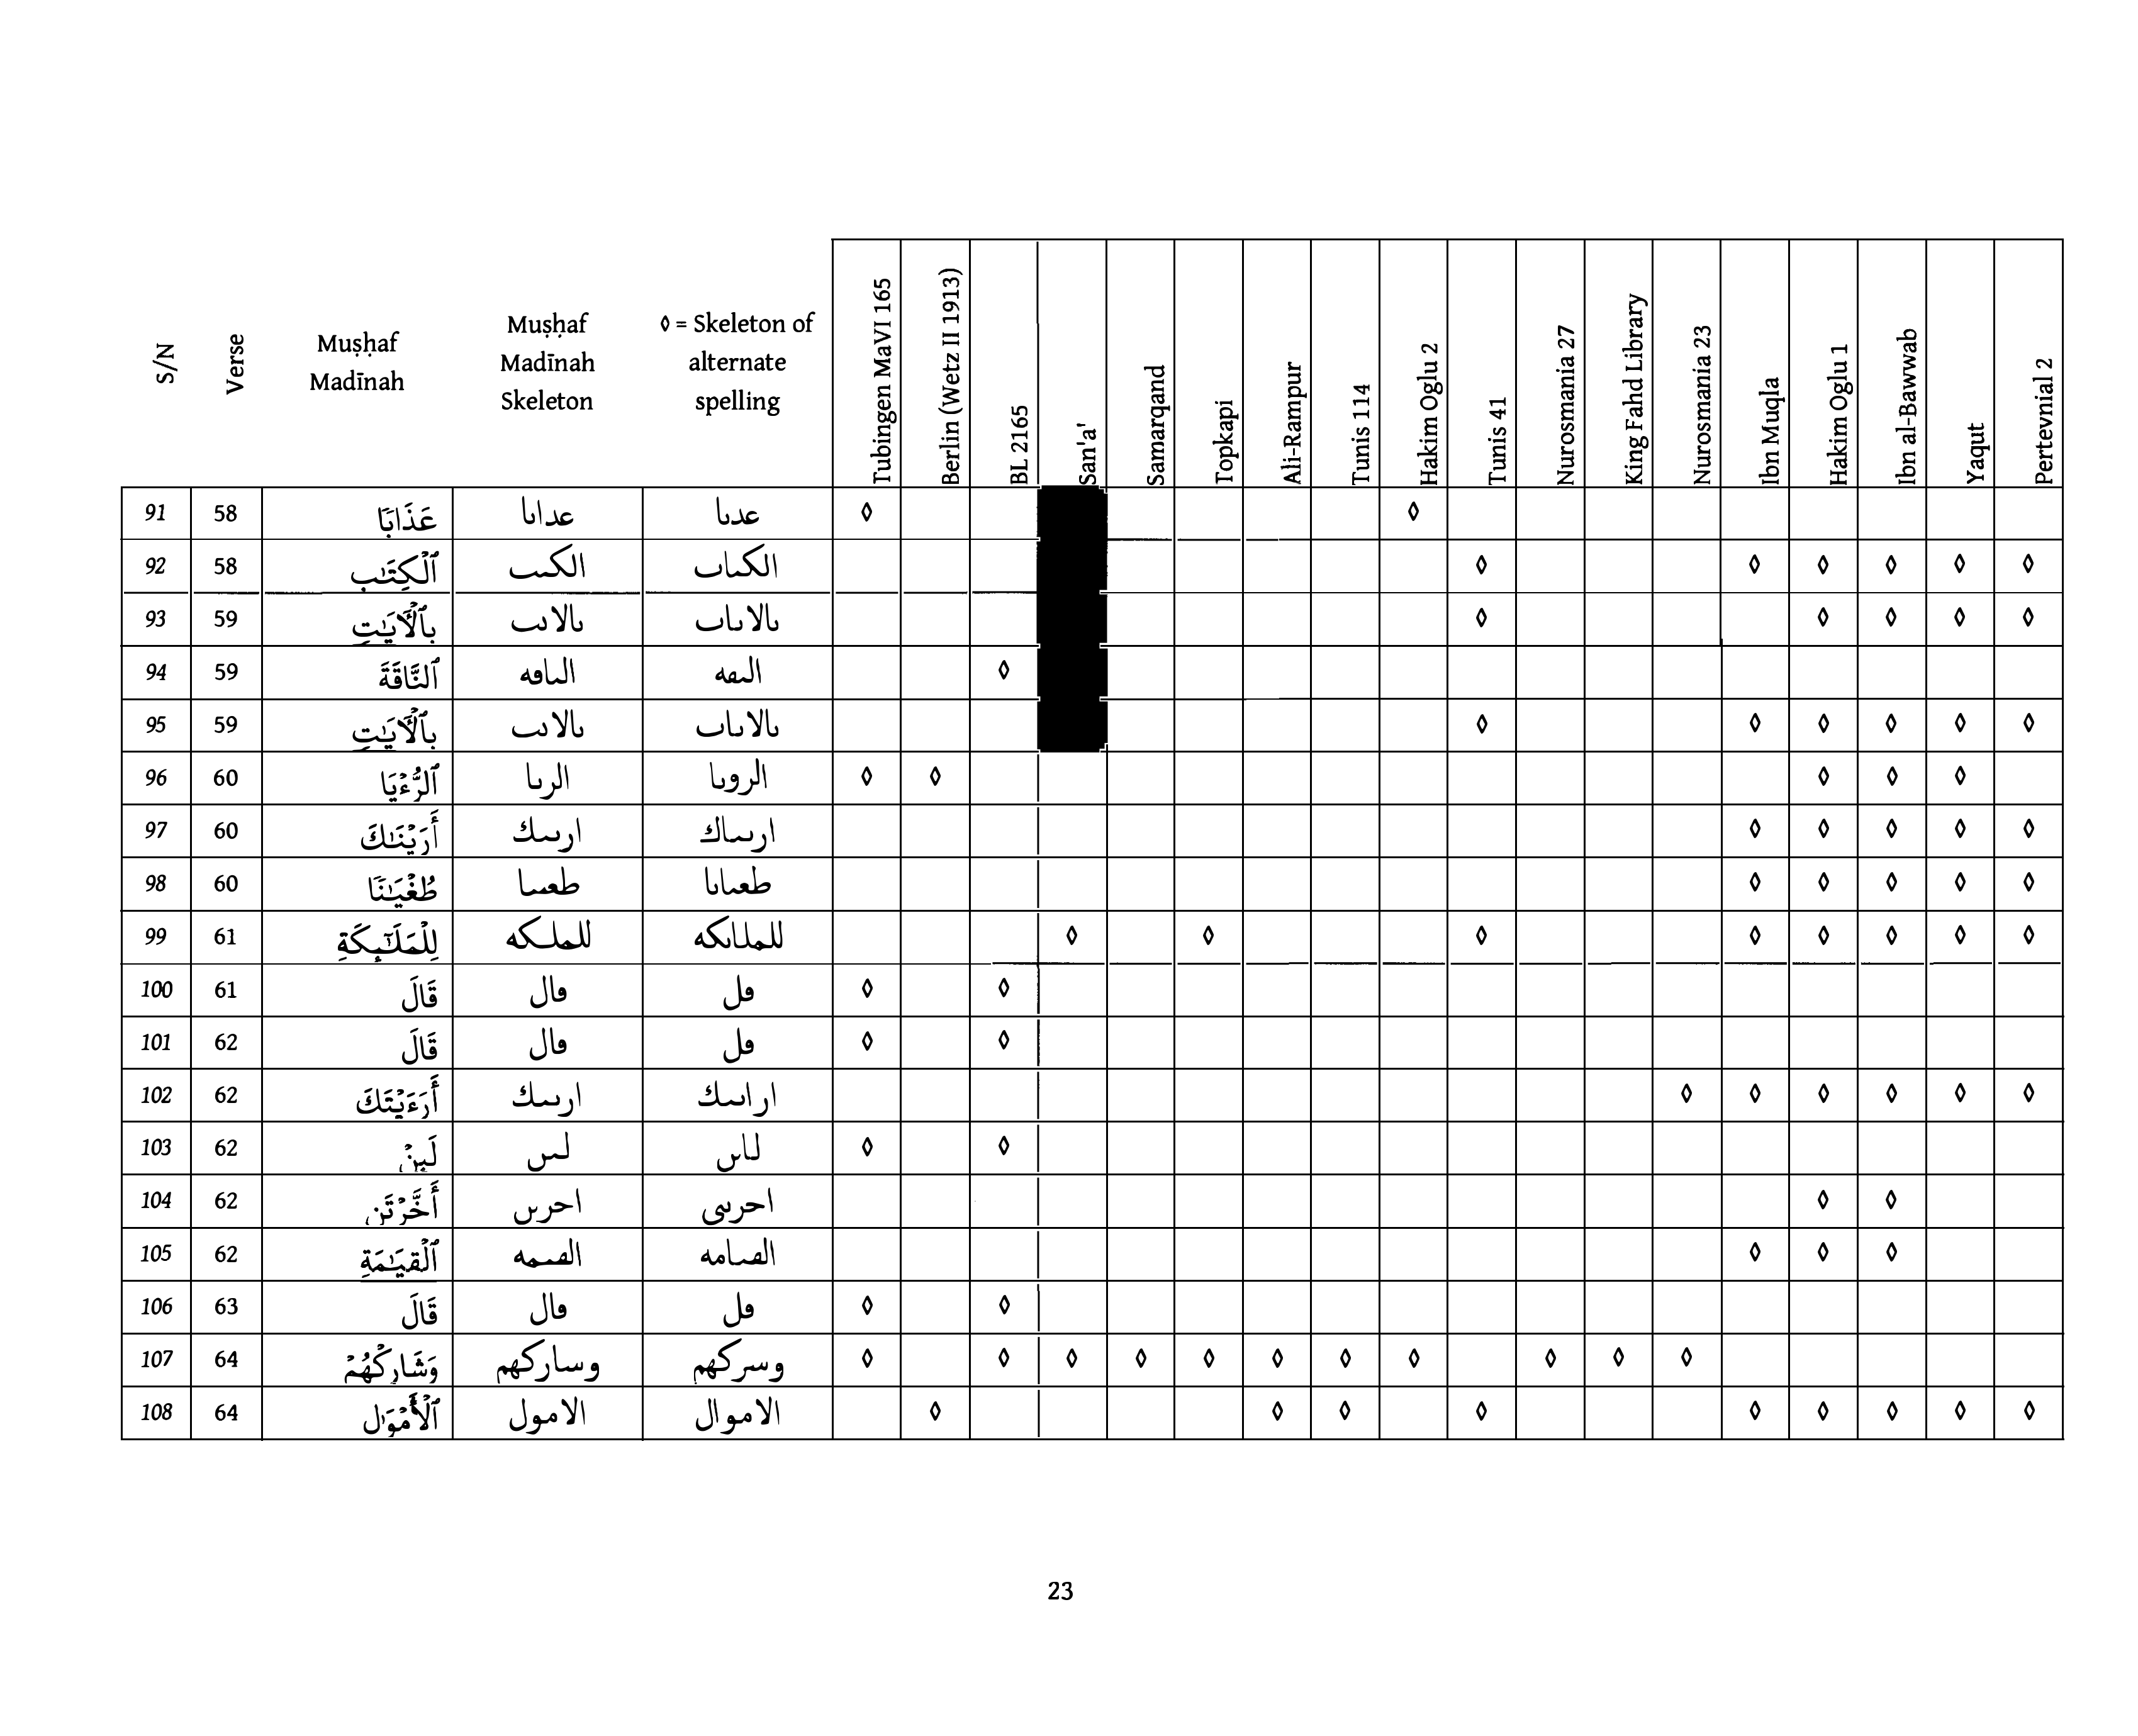 S/N Verse Muṣḥaf Madīnah Muṣḥaf Madīnah Skeleton ◊ = Skeleton of alternate spelling Tubingen MaVI 165 Berlin (Wetz II 1913) BL 2165 San'a' Samarqand Topkapi Ali-Rampur Tunis 114 Hakim Oglu 2 Tunis 41 Nurosmania 27 King Fahd Library Nurosmania 23 Ibn Muqla Hakim Oglu 1 Ibn al-Bawwab Yaqut Pertevnial 2
91 58 عَذَابٗا عداٮا عدٮا ◊ ◊
92 58 ٱلۡكِتَٰبِ الكٮٮ الكٮاٮ ◊ ◊ ◊ ◊ ◊ ◊
93 59 بِٱلۡأٓيَٰتِ ٮالاٮٮ ٮالاٮاٮ ◊ ◊ ◊ ◊ ◊
94 59 ٱلنَّاقَةَ الٮاڡه الٮڡه ◊
95 59 بِٱلۡأٓيَٰتِ ٮالاٮٮ ٮالاٮاٮ ◊ ◊ ◊ ◊ ◊ ◊
96 60 ٱلرُّءۡيَا الرٮا الروٮا ◊ ◊ ◊ ◊ ◊
97 60 أَرَيۡنَٰكَ ارٮٮك ارٮٮاك ◊ ◊ ◊ ◊ ◊
98 60 طُغۡيَٰنٗا طعٮٮا طعٮاٮا ◊ ◊ ◊ ◊ ◊
99 61 لِلۡمَلَٰٓئِكَةِ للملٮكه للملاٮكه ◊ ◊ ◊ ◊ ◊ ◊ ◊ ◊
100 61 قَالَ ڡال ڡل ◊ ◊
101 62 قَالَ ڡال ڡل ◊ ◊
102 62 أَرَءَيۡتَكَ ارٮٮك اراٮٮك ◊ ◊ ◊ ◊ ◊ ◊
103 62 لَئِنۡ لٮں لاٮں ◊ ◊
104 62 أَخَّرۡتَنِ احرٮں احرٮٮى ◊ ◊
105 62 ٱلۡقِيَٰمَةِ الڡٮمه الڡٮامه ◊ ◊ ◊
106 63 قَالَ ڡال ڡل ◊ ◊
107 64 وَشَارِكۡهُمۡ وساركهم وسركهم ◊ ◊ ◊ ◊ ◊ ◊ ◊ ◊ ◊ ◊ ◊
108 64 ٱلۡأَمۡوَٰلِ الامول الاموال ◊ ◊ ◊ ◊ ◊ ◊ ◊ ◊ ◊
23